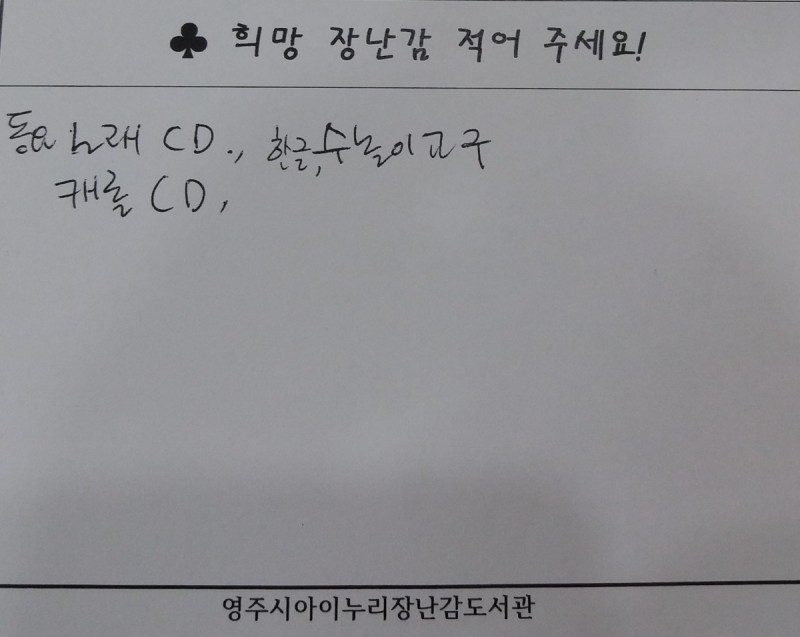 ♣ 희망 장난감 적어 주세요!
동요 노래 CD., 한글, 수놀이교구
캐롤 CD,
영주시아이누리장난감도서관